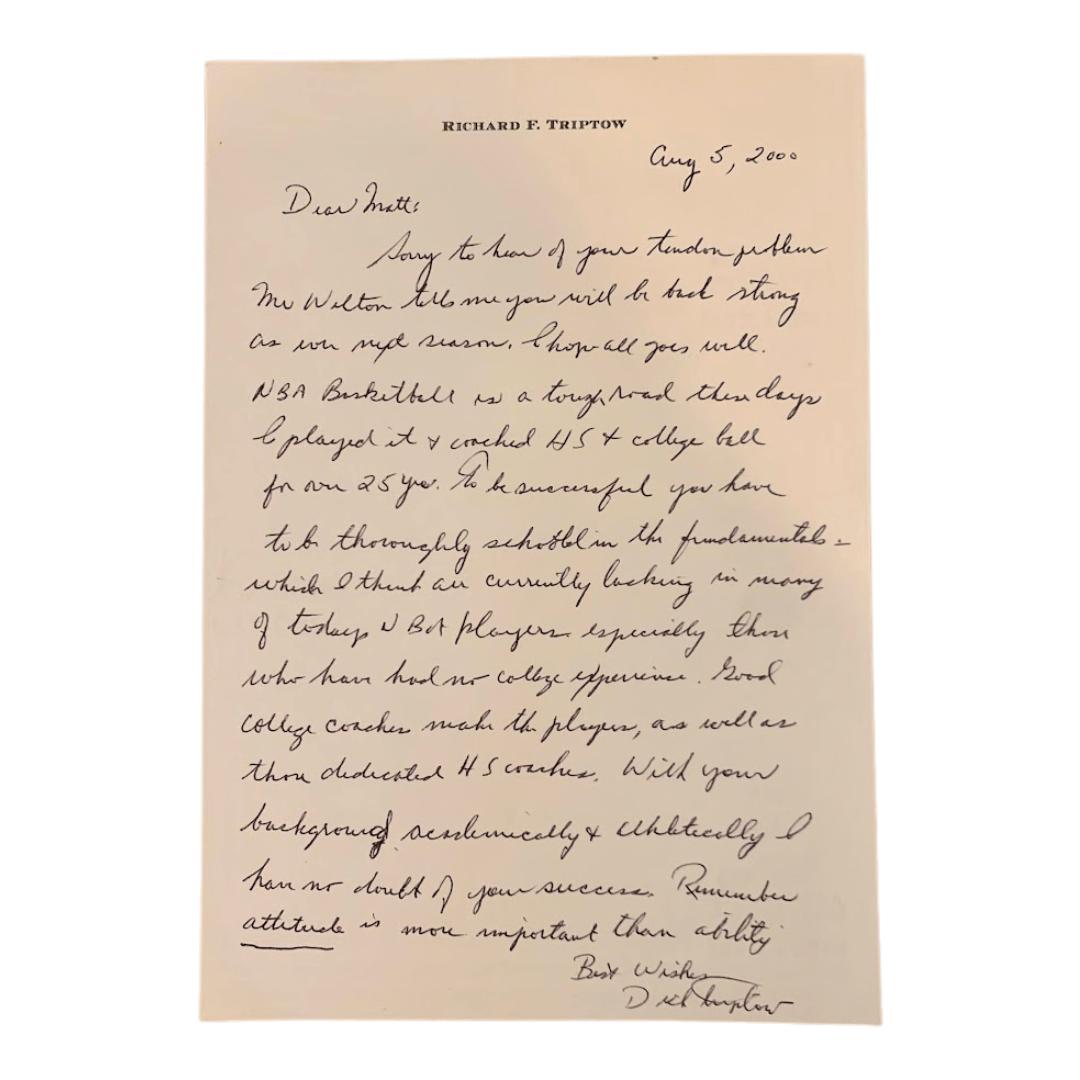 RICHARD F. TRIPTOW
Aug 5, 2000
Dear Matt:
Sorry to hear of your tendon problem
Mr Welton tells me you will be back strong
as ever next season. I hope all goes well.
NBA Basketball is a tough road these days
I played it & coached HS & college ball
for over 25 yrs. To be successful you have
to be thoroughly schooled in the fundamentals -
which I think are currently lacking in many
of todays NBA players especially those
who have had no college experience. Good
college coaches make the players, as well as
those dedicated HS coaches. With your
background academically & athletically I
have no doubt of your success. Remember
attitude is more important than ability
Best Wishes
Dick Triptow